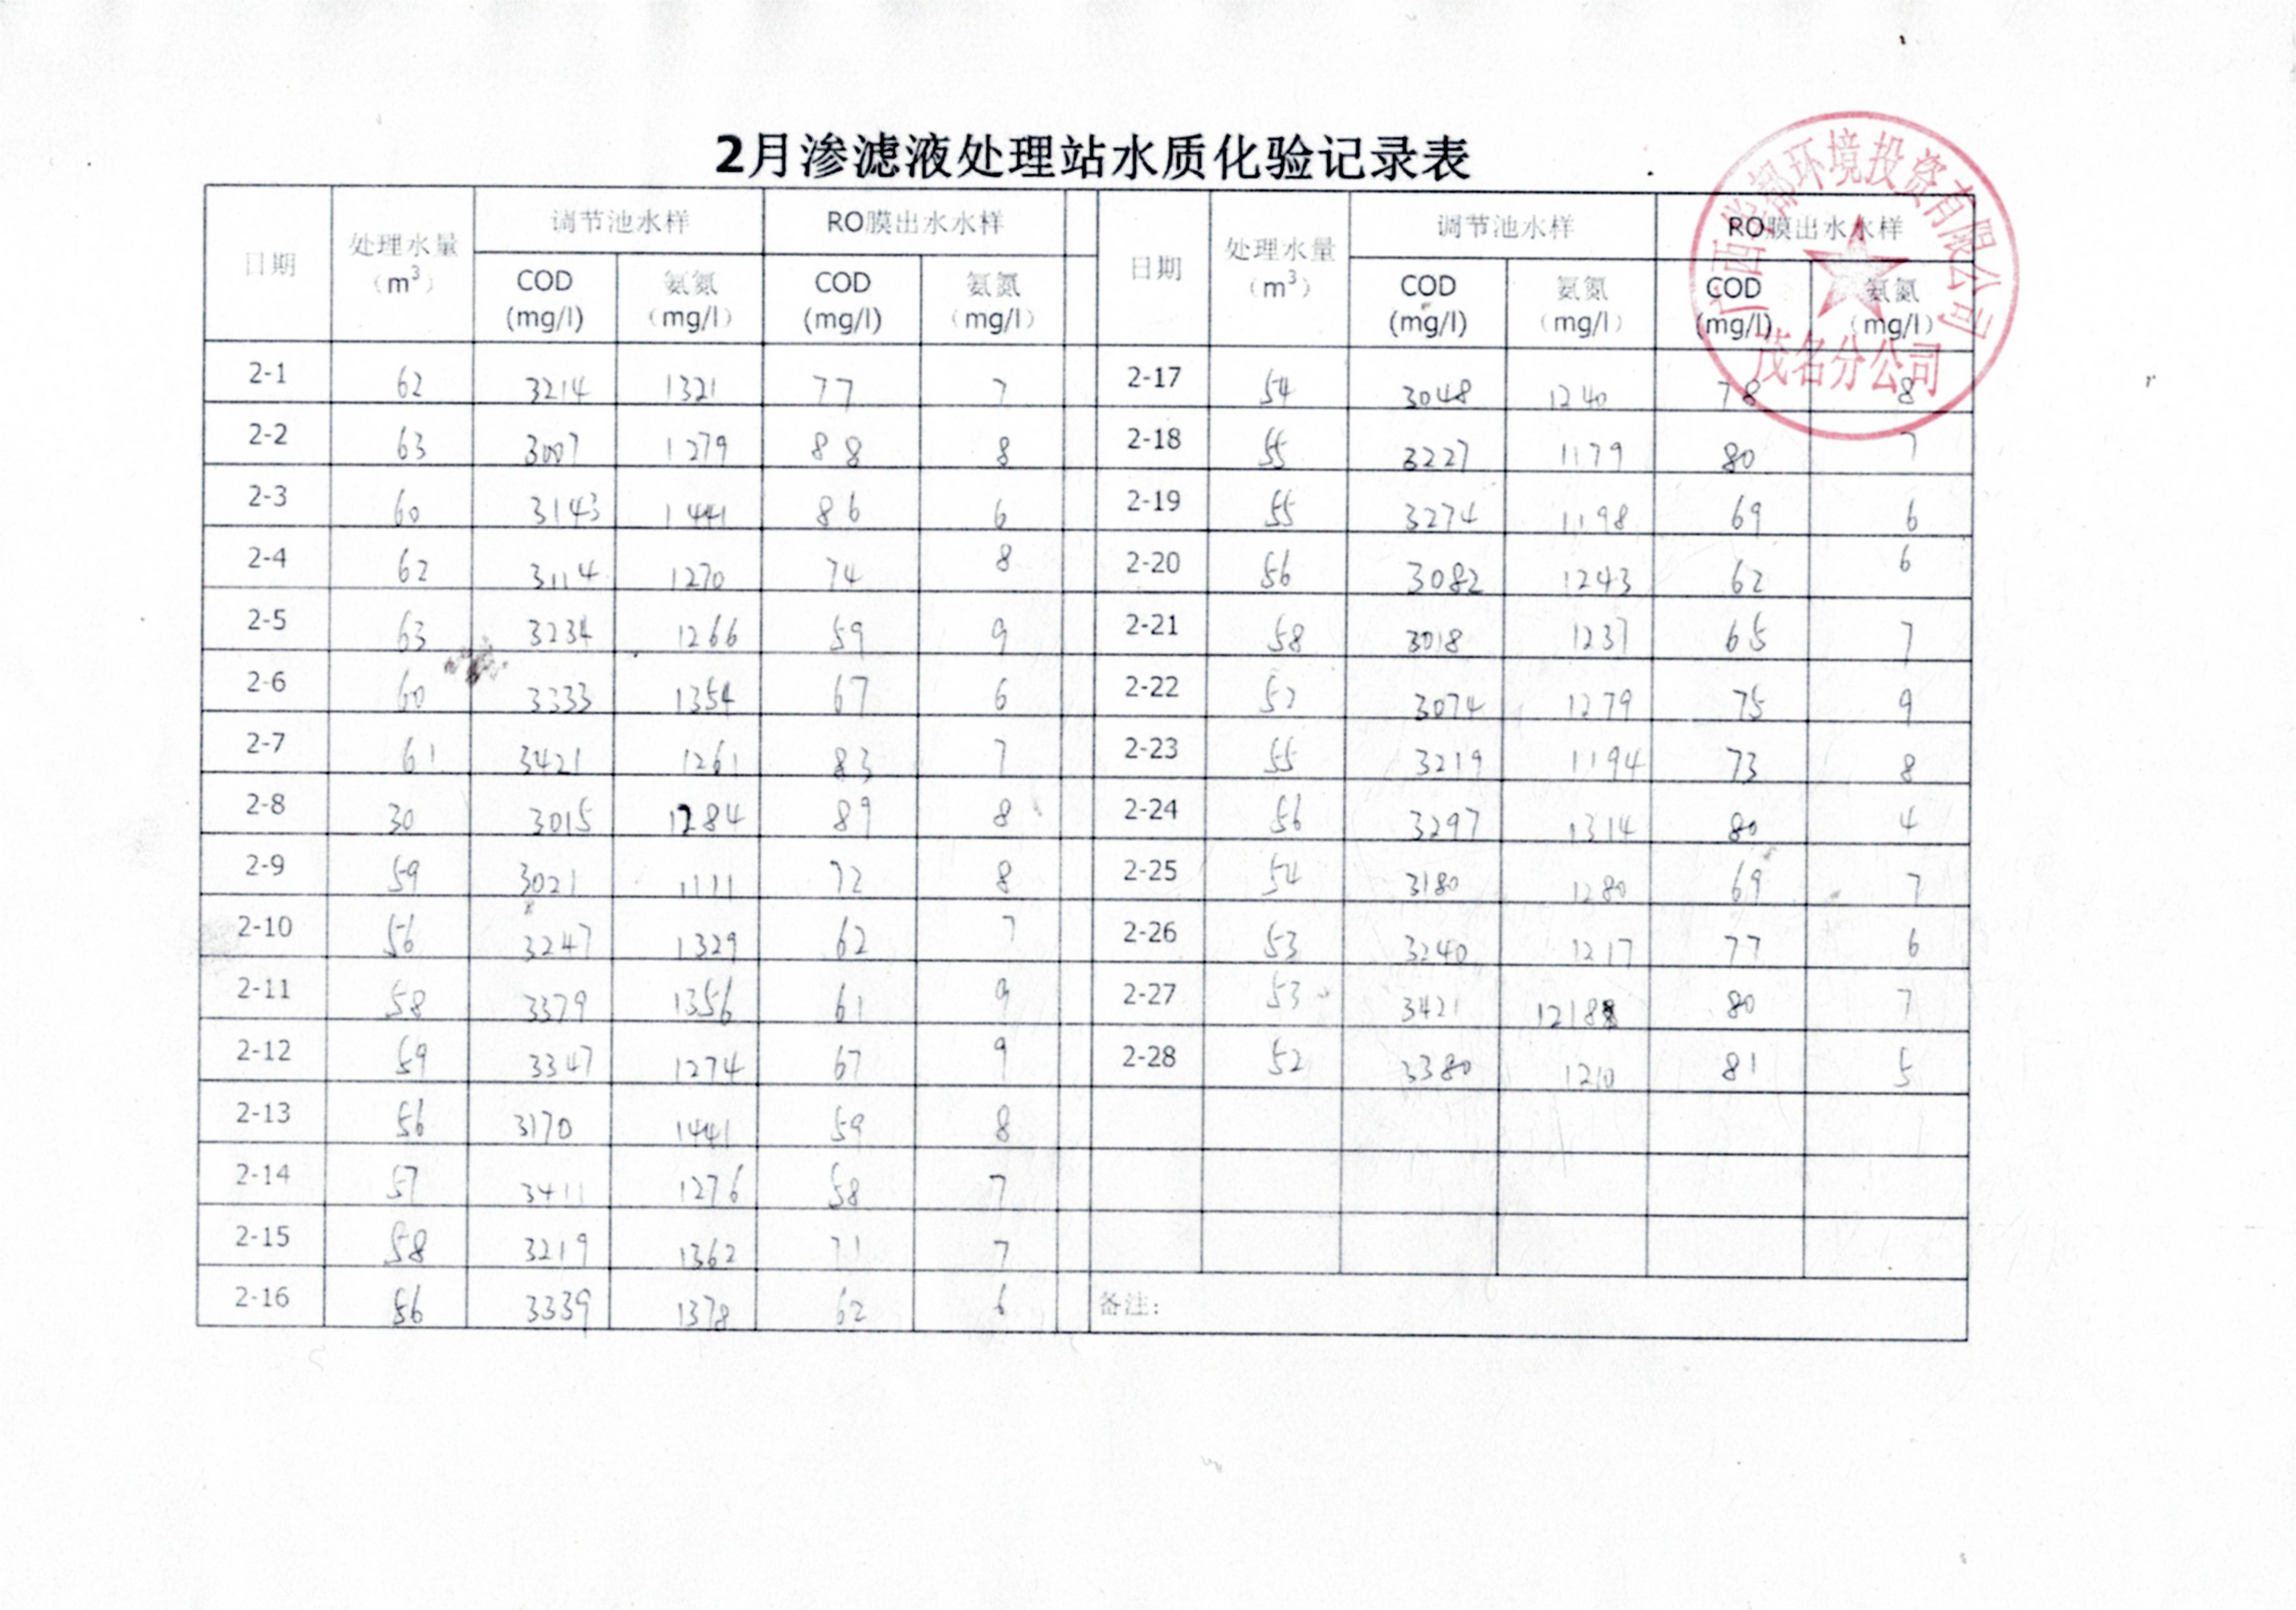 2月渗滤液处理站水质化验记录表
日期 处理水量（m³） 调节池水样 RO膜出水水样 日期 处理水量（m³） 调节池水样 RO膜出水水样
COD (mg/l) 氨氮（mg/l） COD (mg/l) 氨氮（mg/l） COD (mg/l) 氨氮（mg/l） COD (mg/l) 氨氮（mg/l）
2-1 62 3214 1321 77 7 2-17 54 3048 1240 78 8
2-2 63 3007 1279 88 8 2-18 55 3227 1179 80 7
2-3 60 3143 1441 86 6 2-19 55 3274 1198 69 6
2-4 62 3114 1270 74 8 2-20 56 3082 1243 62 6
2-5 63 3234 1266 59 9 2-21 58 3018 1237 65 7
2-6 60 3333 1354 67 6 2-22 52 3074 1279 75 9
2-7 61 3421 1261 83 7 2-23 55 3219 1194 73 8
2-8 30 3015 1284 89 8 2-24 56 3297 1314 80 4
2-9 59 3021 1111 72 8 2-25 54 3180 1280 69 7
2-10 56 3247 1329 62 7 2-26 53 3240 1217 77 6
2-11 58 3379 1356 61 9 2-27 53 3421 1218 80 7
2-12 59 3347 1274 67 9 2-28 52 3380 1210 81 5
2-13 56 3170 1441 59 8
2-14 57 3411 1276 58 7
2-15 58 3219 1362 71 7
2-16 56 3339 1378 62 6 备注:
都环境投资有限公司
茂名分公司